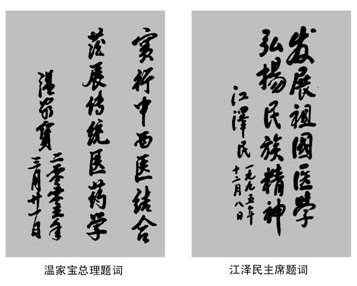 实行中西医结合
发展传统医药学
温家宝
二零零五年
三月廿十日
温家宝总理题词
发展祖国医学
弘扬民族精神
江泽民
一九九五年
十二月八日
江泽民主席题词